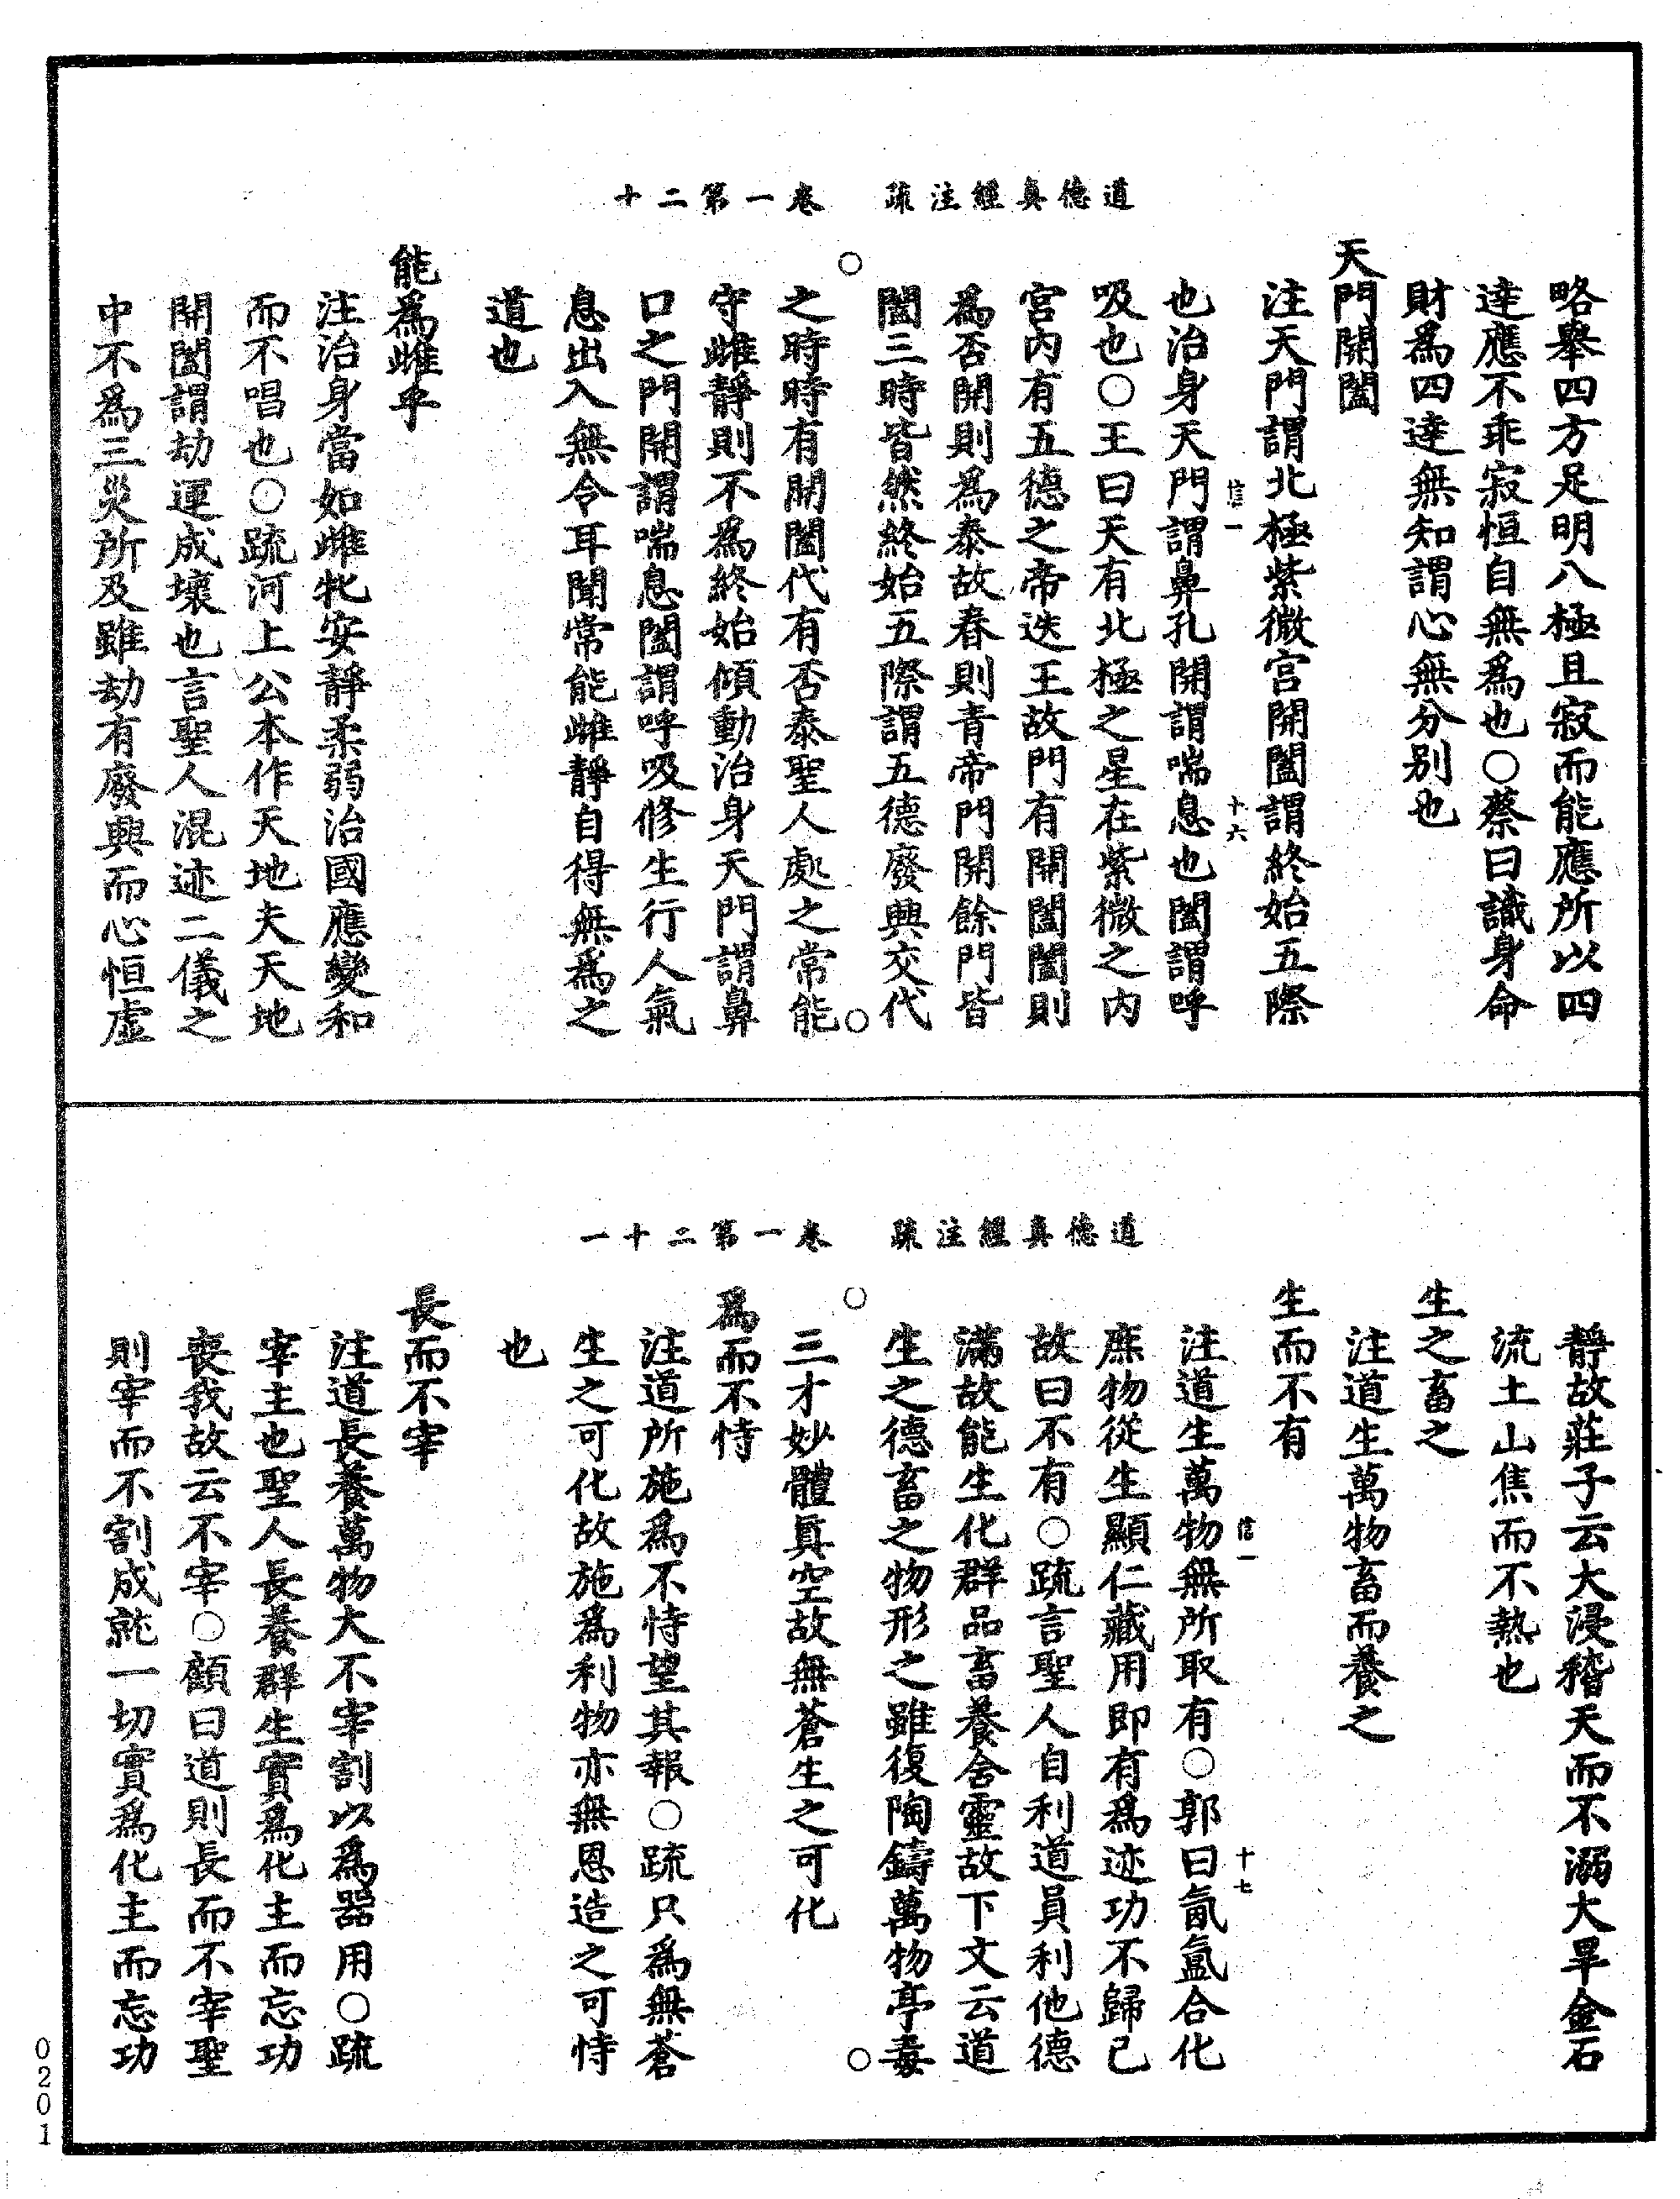 道德真經注疏　卷一第二十
略舉四方足明八極且寂而能應所以四
達應不乖寂恒自無為也○蔡曰識身命
財為四達無知謂心無分别也
天門開闔
注天門謂北極紫微宮開闔謂終始五際
信一　十六
也治身天門謂鼻孔開謂喘息也闔謂呼
吸也○王曰天有北極之星在紫微之内
宮内有五德之帝迭王故門有開闔闔則
為否開則為泰故春則青帝門開餘門皆
闔三時皆然終始五際謂五德廢興交代
之時時有開闔代有否泰聖人處之常能
守雌靜則不為終始傾動治身天門謂鼻
口之門開謂喘息闔謂呼吸修生行人氣
息出入無令耳聞常能雌靜自得無為之
道也
能為雌乎
注治身當如雌牝安靜柔弱治國應變和
而不唱也○疏河上公本作天地夫天地
開闔謂劫運成壞也言聖人混迹二儀之
中不為三災所及雖劫有廢興而心恒虛
道德真經注疏　卷一第二十一
靜故莊子云大浸稽天而不溺大旱金石
流土山焦而不熱也
生之畜之
注道生萬物畜而養之
生而不有
信一　十七
注道生萬物無所取有○郭曰氤氳合化
庶物從生顯仁藏用即有為迹功不歸己
故曰不有○疏言聖人自利道員利他德
滿故能生化群品畜養含靈故下文云道
生之德畜之物形之雖復陶鑄萬物亭毒
三才妙體真空故無蒼生之可化
為而不恃
注道所施為不恃望其報○疏只為無蒼
生之可化故施為利物亦無恩造之可恃
也
長而不宰
注道長養萬物大不宰割以為器用○疏
宰主也聖人長養群生實為化主而忘功
喪我故云不宰○顧曰道則長而不宰聖
則宰而不割成就一切實為化主而忘功
0201